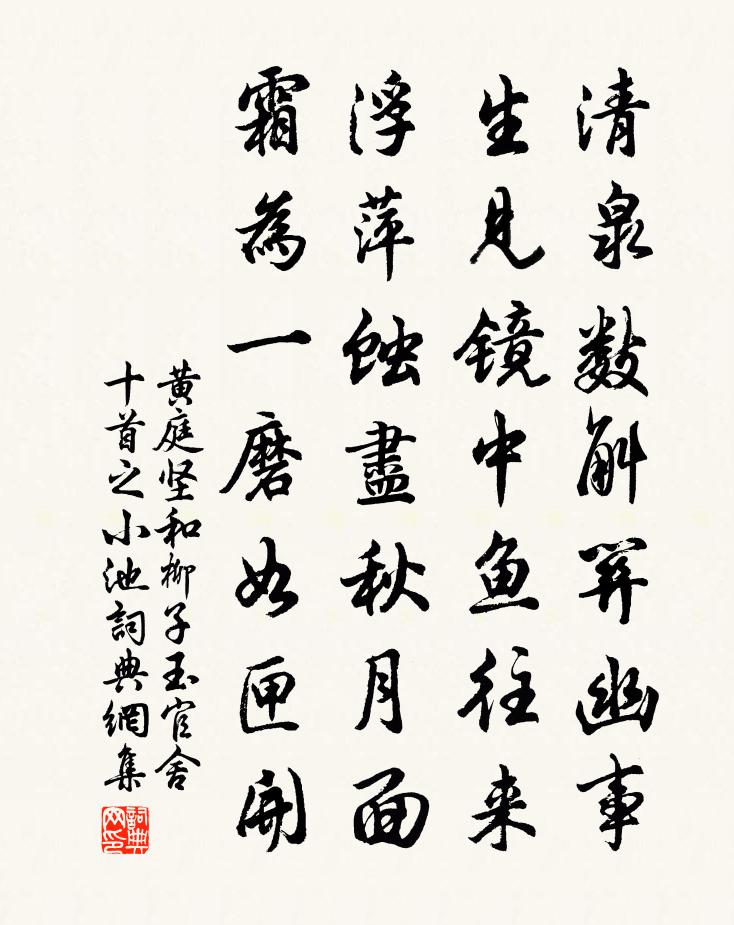 清泉數斛算幽事
生見镜中鱼往来
浮萍蝕盡秋月面
霜為一磨如匣開
黄庭坚和柳子玉官舍
十首之小池詞典網集
詞典网印